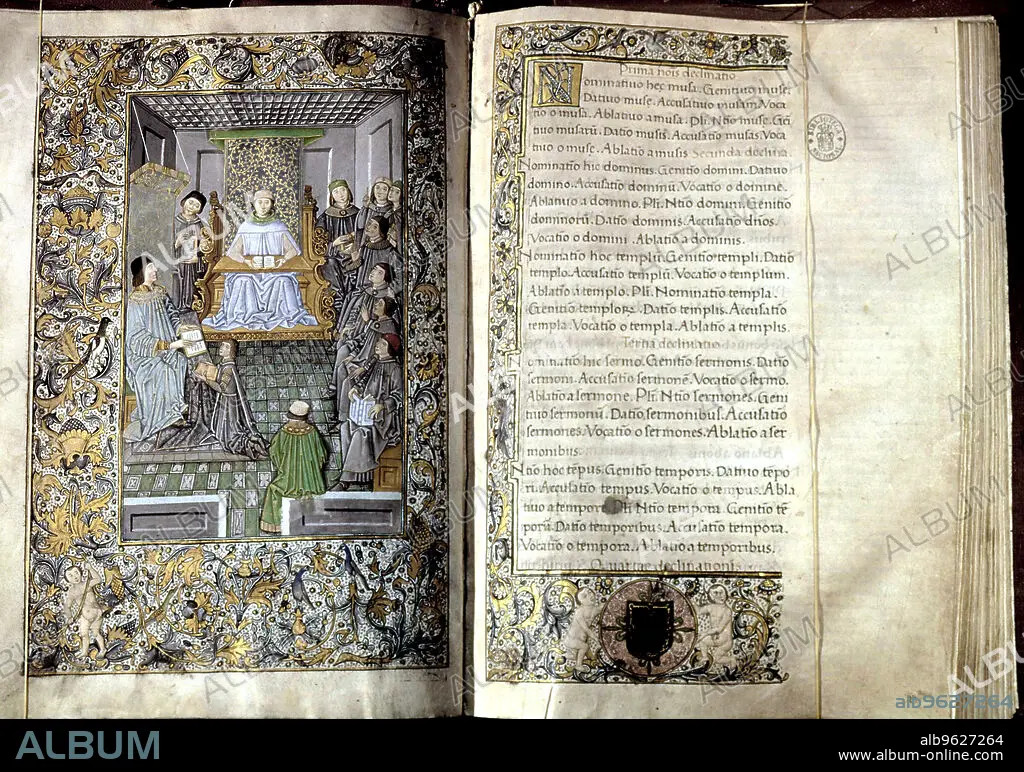 Prima nois declinatio
Nominatiuo hec musa. Genituo muse.
Datiuo muse. Accusatiuo musam. Voca
tio o muse. Ablatiuo a musa. Pli. Ntio muse. Ge
tiuo musarũ. Datio musis. Accusatio musas. Voca
tiuo o muse. Ablatio a musis Secunda declina.
Nominatio hic dominus. Genitio domini. Datiuo
domino. Accusatio dominũ. Vocatio o domine.
Ablatiuo a domino. Pli. Ntio domini. Genitio
dominorũ. Datio dominis. Accusatio dños.
Vocatio o domini. Ablatio a dominis.
Nominatio hoc templũ. Genitio templi. Datio
templo. Accusatio templũ. Vocatio o templum.
Ablatio a templo. Pli. Nominatio templa.
Genitio templorz. Datio templis. Accusatio
templa. Vocatio o templa. Ablatio a templis.
Tertia declinatio
Nominatio hic sermo. Genitio sermonis. Datio
sermoni. Accusatio sermonẽ. Vocatio o sermo.
Ablatio a sermone. Pli. Ntio sermones. Geni
tiuo sermonũ. Datio sermonibus. Accusatio
sermones. Vocatio o sermones. Ablatio a ser
monibus.
Ntio hoc tẽpus. Genitio temporis. Datiuo tẽpo
ri. Accusatio tempus. Vocatio o tempus. Abla
tiuo a tempore Pli Ntio tempora. Genitio tẽ
porũ. Datio temporibus. Accusatio tempora.
Vocatio o tempora. Ablatio a temporibus.
ALBUM
alb9627264
alb9627264
www.album-online.com